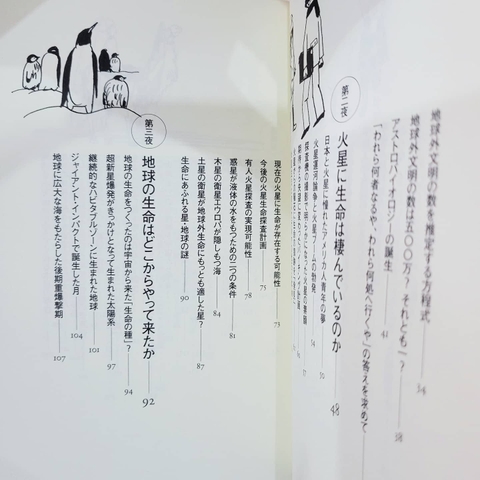 地球外文明の数を推定する方程式 34
地球外文明の数は五〇〇万、それとも一? 38
アストロバイオロジーの誕生 41
「われら何者なるや、われら何処へ行くや」の答えを求めて
第二夜
火星に生命は棲んでいるのか 48
日本と火星に憧れたアメリカ人青年の夢 50
火星運河論争と火星ブームの時発 54
現在の火星に生命が存在する可能性 73
今後の火星生命探査計画 75
有人火星探査の実現可能性 78
惑星が液体の水をもつための二つの条件 81
木星の衛星エウロパが隠しもつ海 84
土星の衛星が地球外生命にもっとも適した星? 87
生命にあふれる星・地球の謎 90
第三夜
地球の生命はどこからやって来たか 92
地球の生命をつくったのは宇宙から来た「生命の種」? 94
超新星爆発がきっかけとなって生まれた太陽系 97
継続的なハビタブルゾーンに生まれた地球 101
ジャイアント・インパクトで誕生した月 104
地球に広大な海をもたらした後期重爆撃期 107